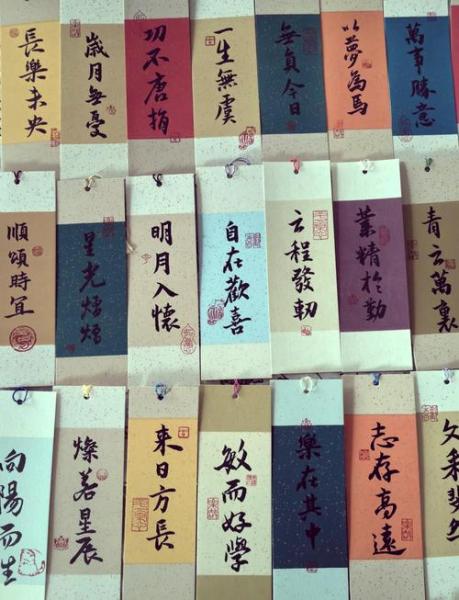 長樂未央
歲月無憂
功不唐捐
一生無虞
無負今日
以夢為馬
萬事勝意
順頌時宜
星光熠熠
明月入懷
自在歡喜
云程發軔
業精於勤
青云萬裏
向陽而生
燦若星辰
来日方長
敏而好學
樂在其中
志存高遠
文采斐然